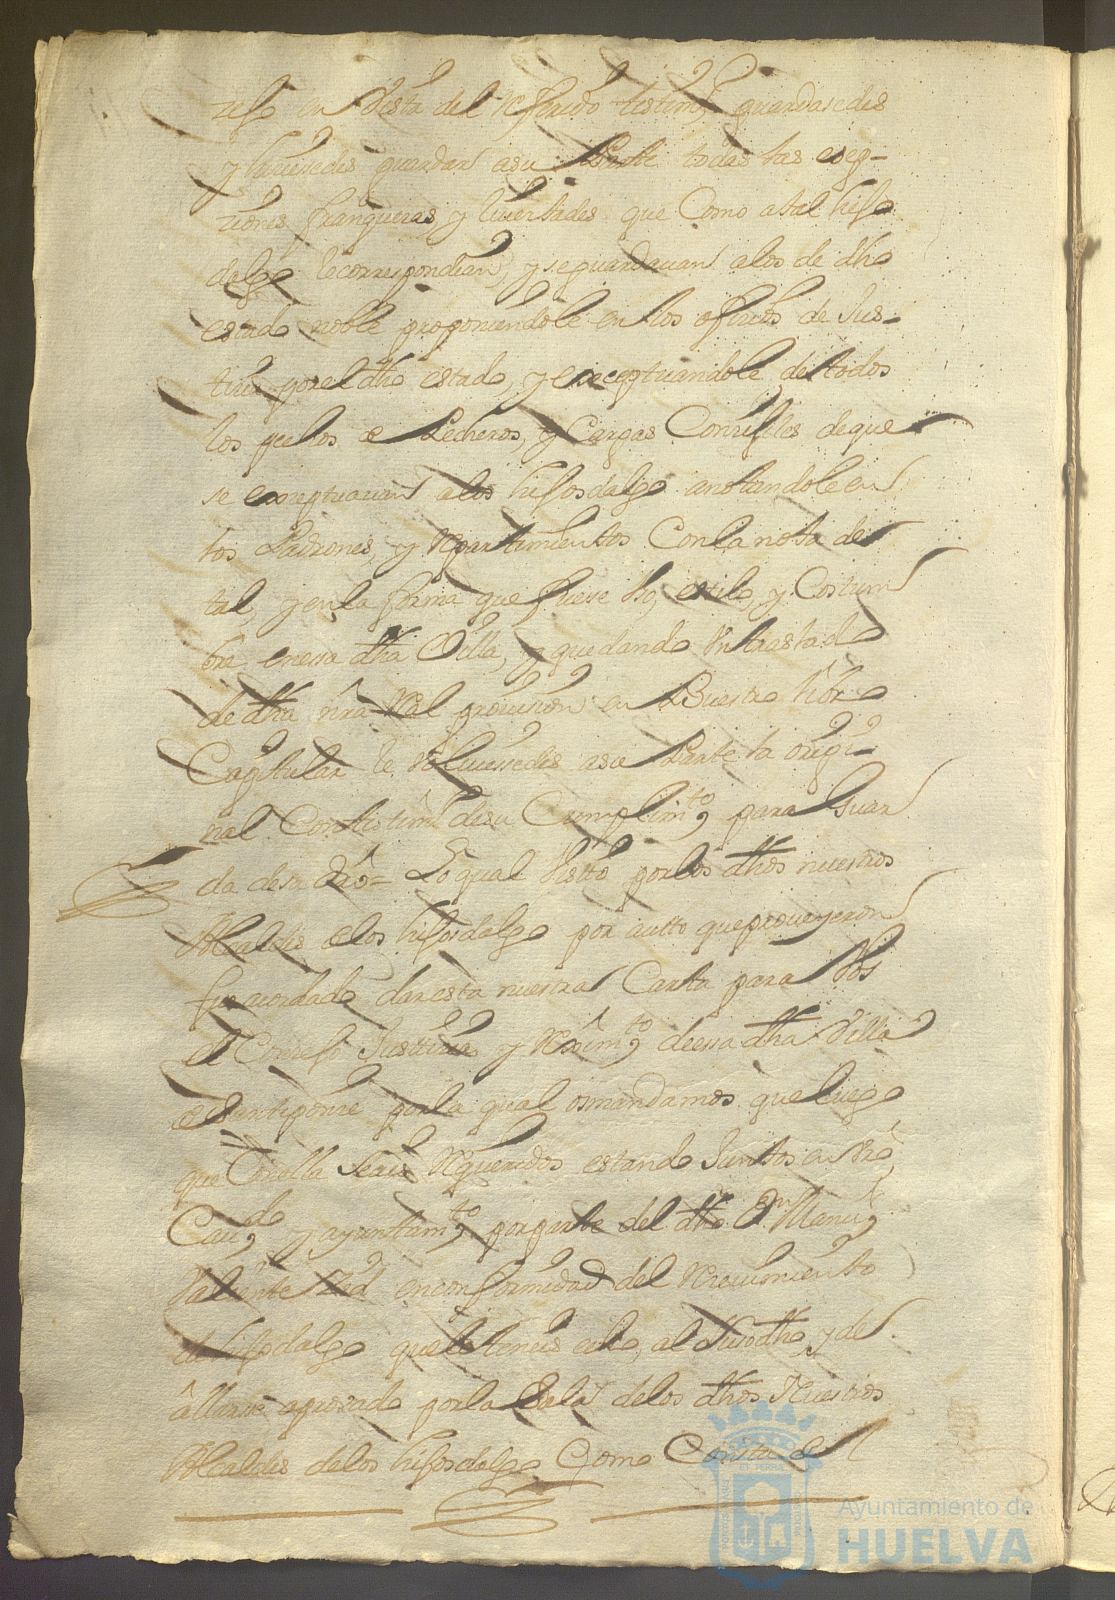 zejo en Vista del Referido testimo guardasedes
y hiciesedes guardar a su Parte todas las esep-
ziones franquezas y livertades que Como a tal hijo
dalgo le correspondian, y se guardavan a los de dho
estado noble proponiendole en los ofizios de Jus-
tizia por el dho estado, y exceptuandole de todos
los pechos de Pecheros, y Cargas Conzejiles de que
se exceptuavan a los hijosdalgo anotandole en
los Padrones, y Repartimientos Con la nota de
tal, y en la forma que fuese Uso, estilo, y Costum
bre en essa dha Villa, y quedando Un traslado
de dha nra Real provision en Vuestro libro
Capitular le volviessedes a su Parte la origi-
nal Con testimo de su Cumplimto para Guar
da de su dro = Lo qual Visto por los dhos nuestros
Alcaldes de los hijosdalgo por autto que proveyeron
fue acordado dar esta nuestra Carta para Vos
el Conzejo Justizia y Reximto de essa dha Villa
de Santiponze por la qual os mandamos que luego
que Con ella seais Requeridos estando Juntos en vro
Cavdo y ayuntamto por parte del dho Dn Manul
Valiente en conformidad del Recivimiento
de hijodalgo que le teneis echo, al Susodho, y de
allarse aprovado por la Sala de los dhos Nuestros
Alcaldes de los hijosdalgo Como Consta del
Ayuntamiento de
HUELVA